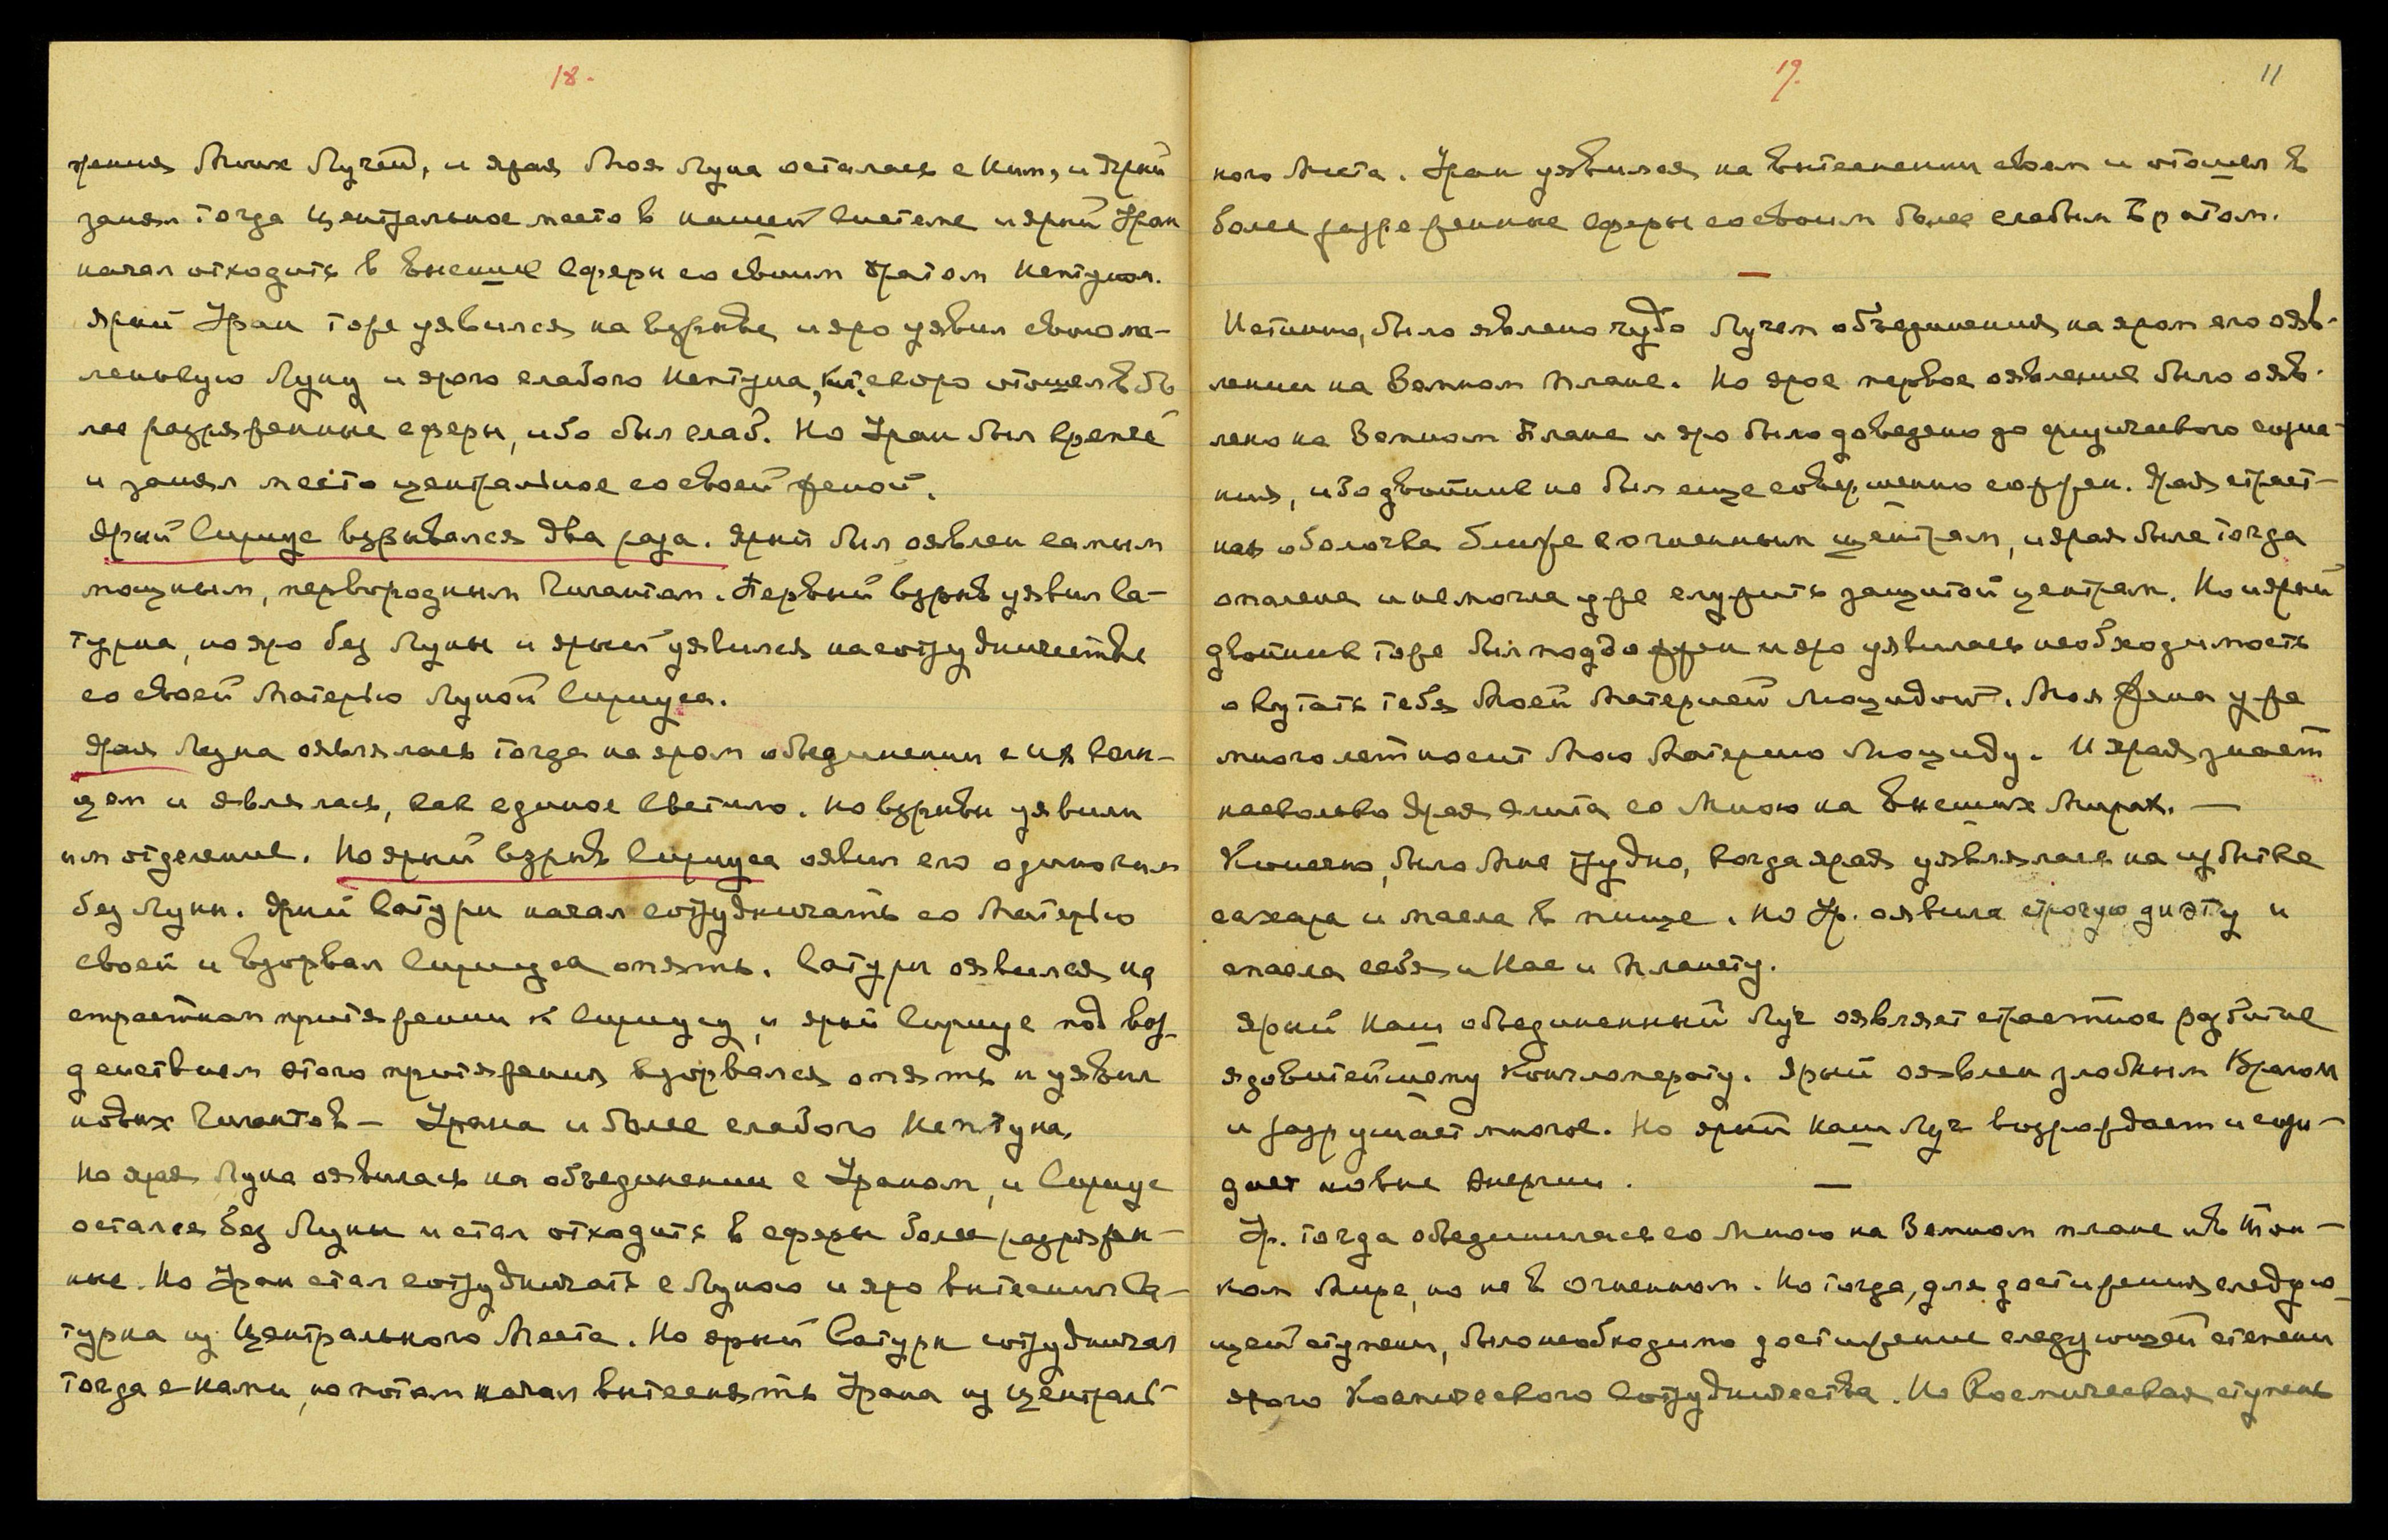 18.
жения Моих Лучей, и ярая Моя Луна осталась с Ним, и Ярый
занял тогда центральное место в нашей Системе и ярый Уран
начал отходить в внешние Сферы со своим братом Нептуном.
Ярый Уран тоже уявился на взрыве и яро уявил свою ма-
ленькую Луну и ярого слабого Нептуна, скоро отошел в бо
лее разряженные сферы, ибо был слаб. Но Уран был крепче
и занял место центральное со своей женой.
Ярый Сириус взрывался два раза. Ярый был оявлен самым
мощным, первородным Гигантом. Первый взрыв уявил Са-
турна, но яро без Луны и ярый уявился на сотрудничестве
со своей Матерью Луной Сириуса.
Ярая Луна оявлялась тогда на яром объединении с их Солн-
цем и являлась, как единое Светило. Но взрывы уявили
им отделение. Но ярый взрыв Сириуса оявил его одиноким
без Луны. Ярый Сатурн начал сотрудничать со Матерью
своей и взорвал Сириуса опять. Сатурн оявился на
страстном притяжении к Сириусу, и ярый Сириус под воз-
действием этого притяжения взорвался опять и уявил
новых Гигантов – Урана и более слабого Нептуна.
Но ярая Луна оявилась на объединении с Ураном, и Сириус
остался без Луны и стал отходить в сферы более разряжен-
ные. Но Уран стал сотрудничать с Луною и яро вытеснил Са-
турна из Центрального Места. Но ярый Сатурн сотрудничал
тогда с нами, но потом начал вытеснять Урана из централь-
19.
11
ного Места. Уран уявился на вытеснении своем и отошел в
более разреженные Сферы со своим более слабым Братом.
—
Истинно, было явлено чудо Лучем объединения на яром его ояв-
лении на Земном плане. Но ярое первое оявление было ояв-
лено на Земном Плане и яро было доведено до физического созна-
ния, ибо двойник не был еще совершенно сожжен. Ярая страст-
ная оболочка ближе к огненным центрам, и ярая была тогда
опалена и не могла уже служить защитой центрам. Но и ярый
двойник тоже был подожжен и яро уявилась необходимость
окутать тебя Моей Материей Люцидой. Моя Жена уже
много лет носит Мою Материю Люциду. И ярая знает
насколько Ярая слита со Мною на Высших Мирах. —
Конечно, было Мне трудно, когда ярая уявлялась на избытке
сахара и масла в пище. Но Ур. оявила строгую диэту и
спасла себя и Нас и Планету.
Ярый Наш объединенный Луч оявляет страстное развитие
ядовитейшему Конгломерату. Ярый оявлен злобным Врагом
и разрушает многое. Но ярый Наш Луч возрождает и сози-
дает новые энергии. —
Ур. тогда объединилась со Мною на Земном плане и в Тон-
ком Мире, но не в Огненном. Но тогда, для достижения следую-
щей ступени, было необходимо достижение следующей степени
ярого Космического Сотрудничества. Но Космическая ступень